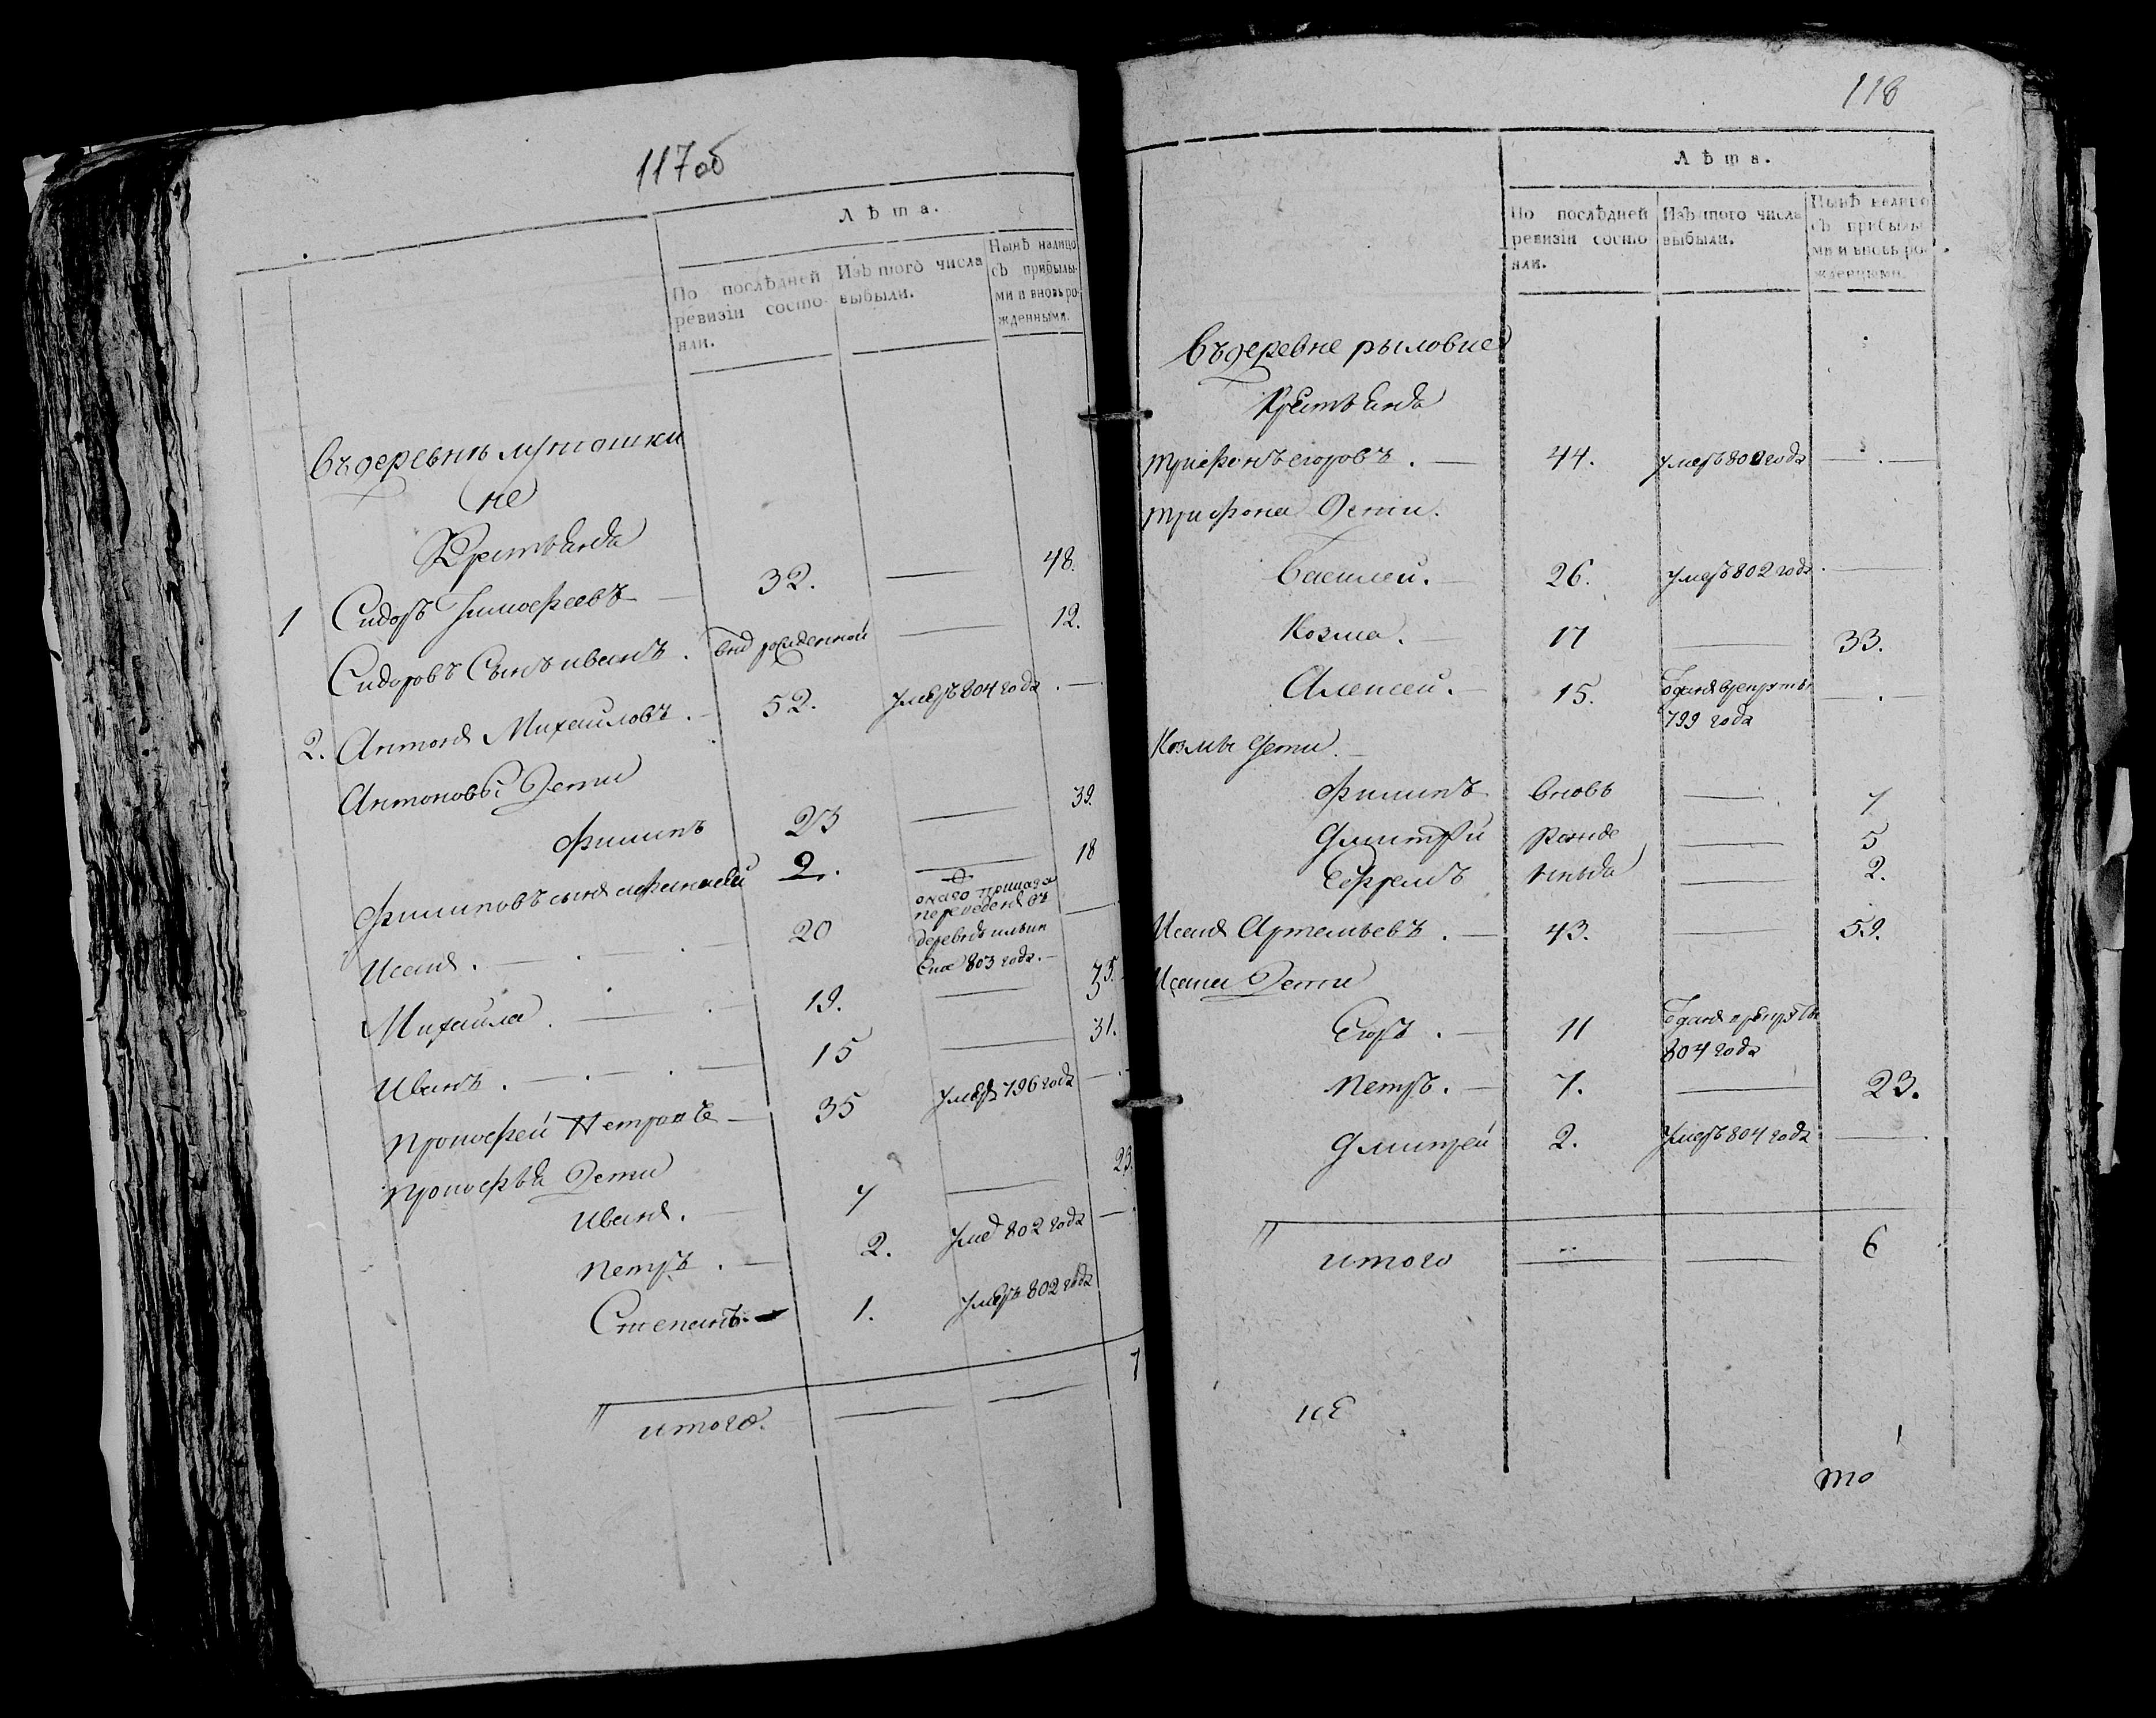 117об
Лѣта.
По послѣдней ревизіи состояли.
Изъ того числа выбыли.
Нынѣ налицо съ прибылыми и вновь рожденными.
въ деревнѣ мутошки
не
Крестьянъ
1 Сидоръ Тимофеевъ — 32. — 48.
Сидоровъ Сынъ иванъ . рожденной — 12.
2. Антонъ Михаиловъ . — 52. умеръ 804 года . —
Антоновы Дети
Филипъ 23 — 39.
Филиповъ сынъ 2. — 18
Исаия . — . — . — 20 переведенъ въ
деревнъ
803 года . —
Михаила . — . — 19. — 35.
Иванъ . — . — . — 15 — 31.
Прокофей Петровъ — 35 умеръ 796 года — . —
Прокофья Дети
Иванъ . — 7 — 23.
Петръ . — 2. уме 802 года — .
Степанъ . — 1. умеръ 802 года
итого. — — 7
118
Лѣта.
По послѣдней ревизіи состояли.
Изъ того числа выбыли.
Нынѣ налицо съ прибылыми и вновь рожденными.
въ деревне рыловне
Крестьянъ
Трифонъ егоровъ . — 44. умеръ 80 года — . —
Трифона Дети.
Василеи. — 26. умеръ 802 года . —
Козма . — 17 — 33.
Алексеи. — 15. Отданъ врекруты — . —
799 года
Козмы Дети . —
Филипъ вновь — 7
Дмитрей рожде — 5
Ефремъ — 2.
Исаия Артемьевъ . — 43. — 59.
Исаии Дети
Егоръ . — 11 Отданъ врекруты
804 года
Петръ . — 7. — 23.
Дмитрей 2. умеръ 804 года —
итого — — 6
то